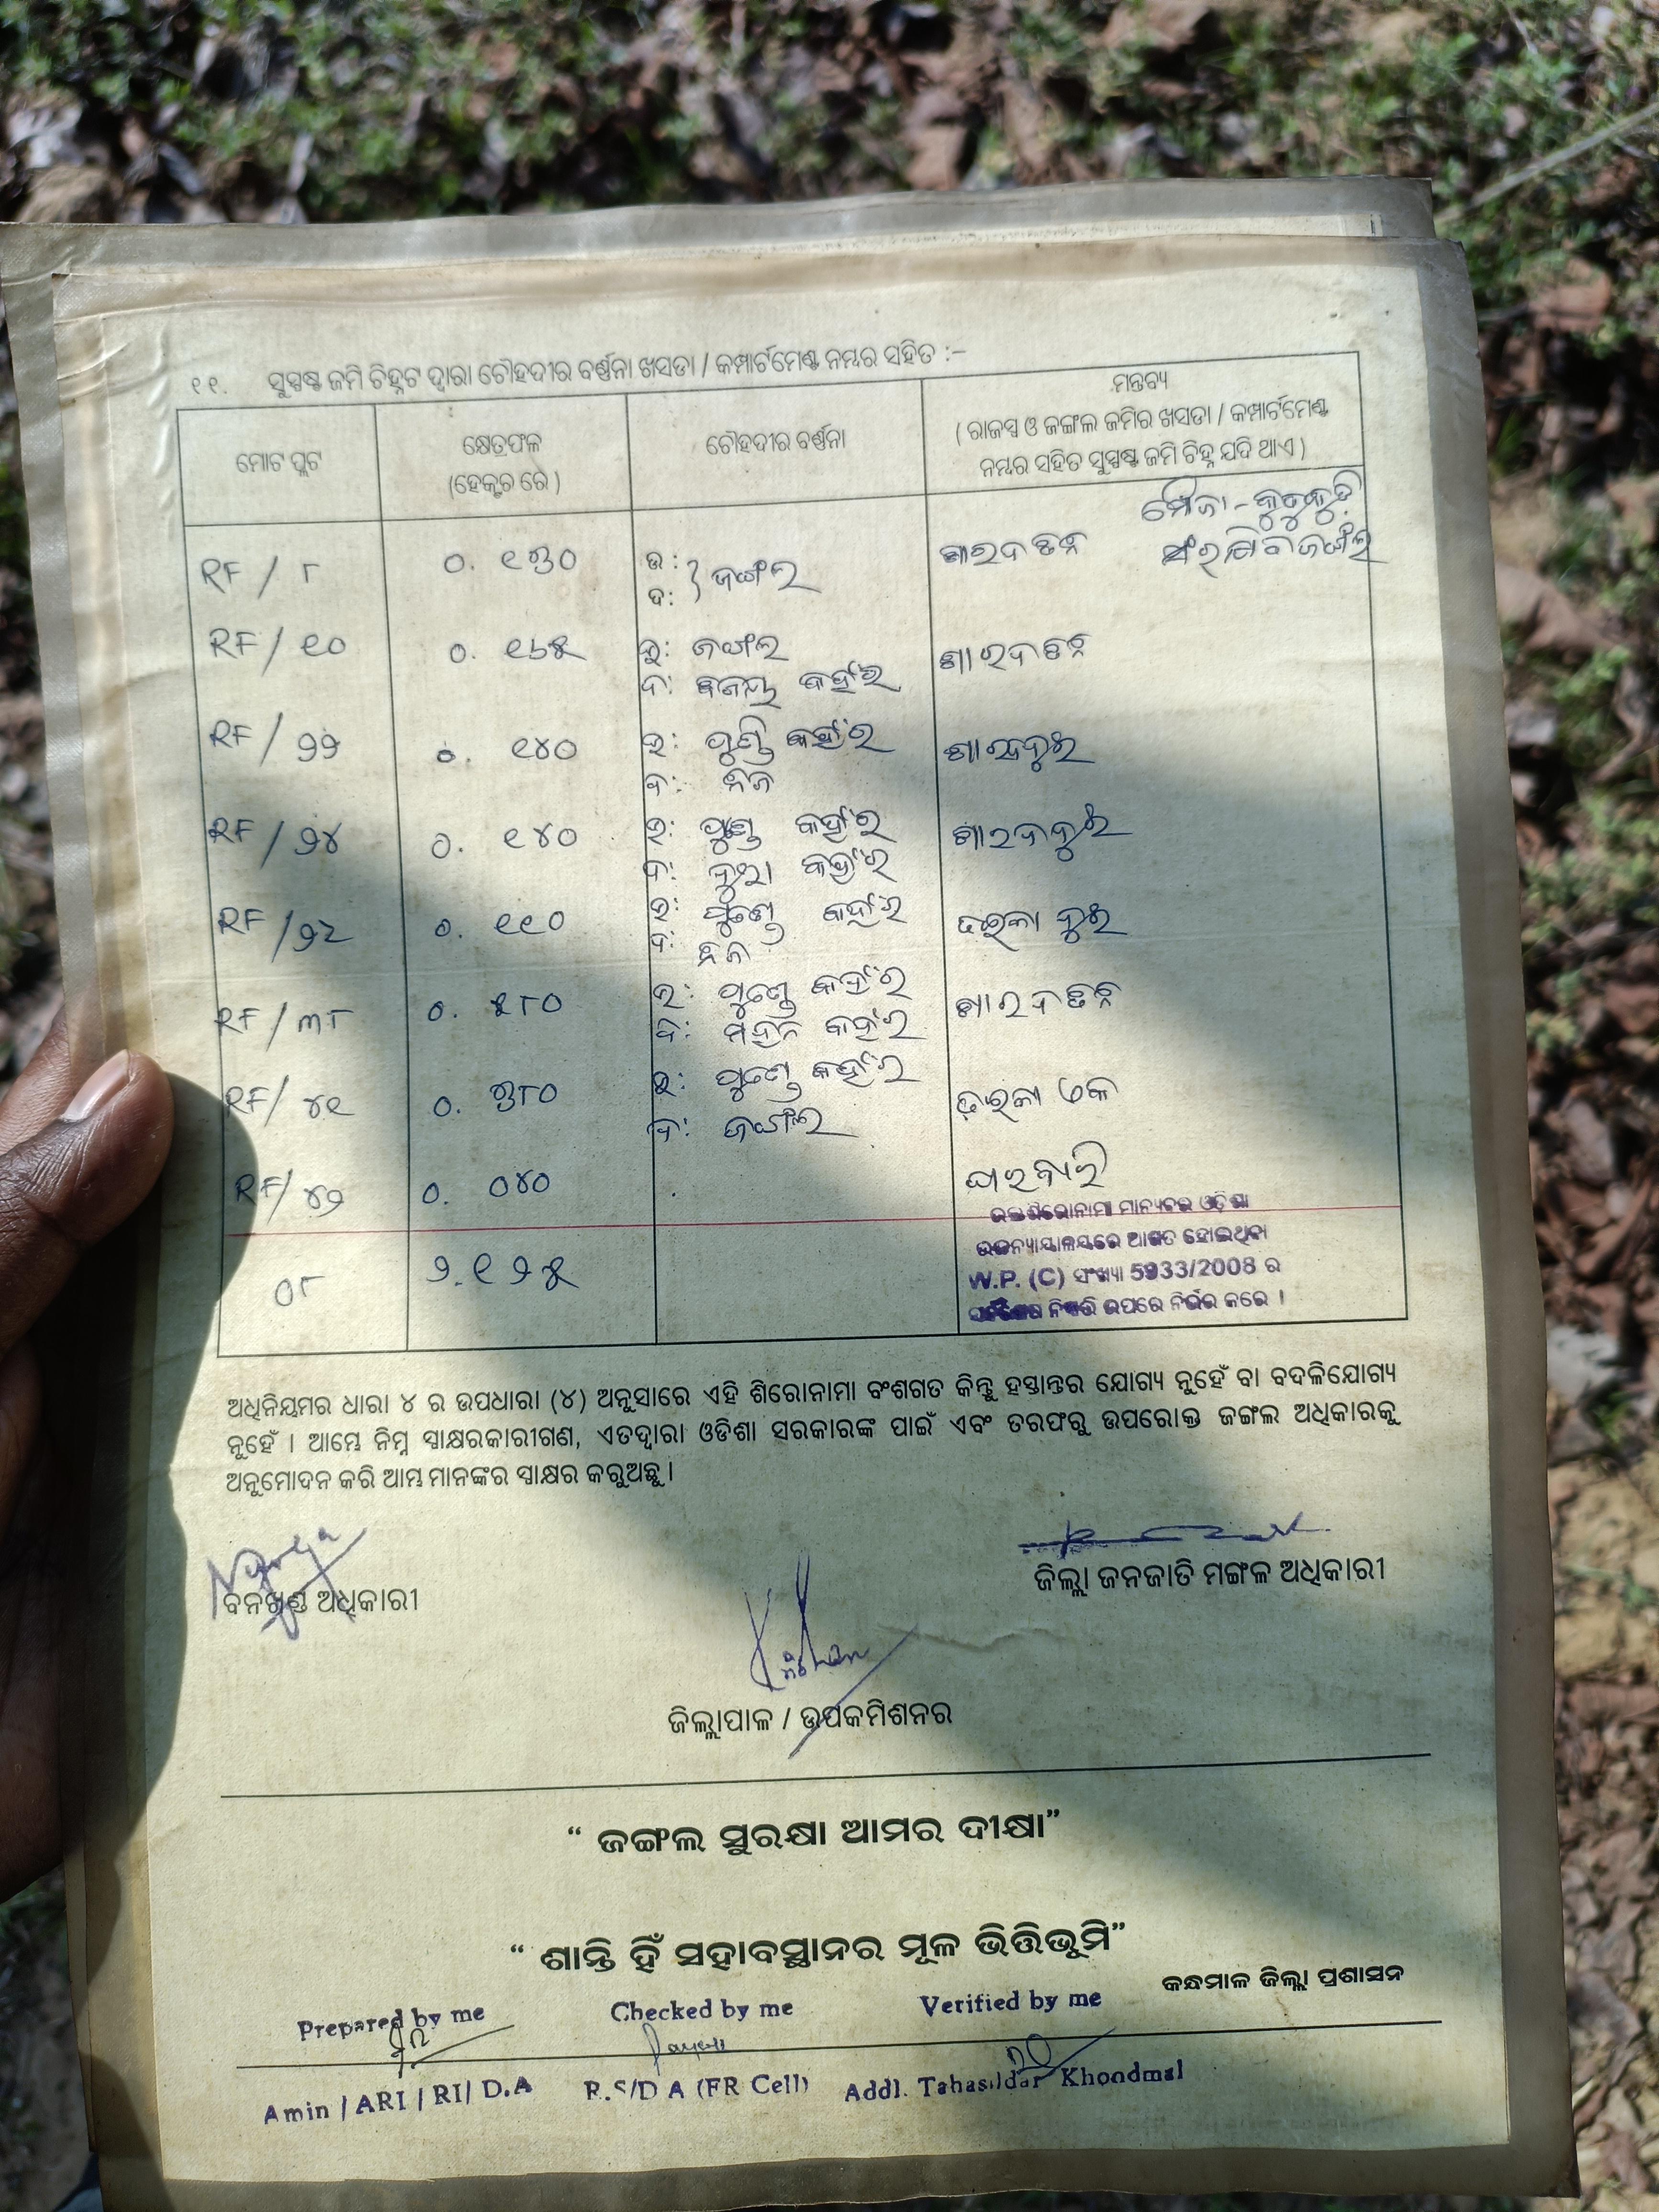 ୧୧. ସୁସ୍ପଷ୍ଟ ଜମି ଚିହ୍ନଟ ଦ୍ୱାରା ଚୌହଦୀର ବର୍ଣ୍ଣନା ଖସଡା / କମ୍ପାର୍ଟମେଣ୍ଟ ନମ୍ବର ସହିତ :–
ମୋଟ ପ୍ଲଟ
କ୍ଷେତ୍ରଫଳ
(ହେକ୍ଟର ରେ)
ଚୌହଦୀର ବର୍ଣ୍ଣନା
ମନ୍ତବ୍ୟ
(ରାଜସ୍ୱ ଓ ଜଙ୍ଗଲ ଜମିର ଖସଡା / କମ୍ପାର୍ଟମେଣ୍ଟ
ନମ୍ବର ସହିତ ସୁସ୍ପଷ୍ଟ ଜମି ଚିହ୍ନ ଯଦି ଥାଏ)
ମୌଜା -
RF / ୮ ୦. ୧୩୦ ଉ: ଦ: } ଜଙ୍ଗଲ ଶାରଦ
RF / ୧୦ ୦. ୧୬୫ ଉ: ଜଙ୍ଗଲ ଶାରଦ
ଦ: କହଁର
RF / ୨୨ ୦. ୧୪୦ ଉ: କହଁର
ଦ: ନିଜ
RF / ୨୪ ୦. ୧୪୦ ଉ: କହଁର
ଦ: କହଁର
RF / ୨୯ ୦. ୧୧୦ ଉ: କହଁର
ଦ: ନିଜ
RF / ୩୮ ୦. ୫୮୦ ଉ: କହଁର ଶାରଦ
ଦ: ମହନ କହଁର
RF / ୪୧ ୦. ୩୮୦ ଉ: କହଁର ଏକ
ଦ: ଜଙ୍ଗଲ
RF / ୪୨ ୦. ୦୪୦ ଘରବାରି
୦୮ ୨.୧୨୫
ଉକ୍ତ ଶିରୋନାମା ମାନ୍ୟବର ଓଡ଼ିଶା
ଉଚ୍ଚନ୍ୟାୟାଳୟରେ ଆଗତ ହୋଇଥିବା
W.P. (C) ସଂଖ୍ୟା 5933/2008 ର
ନିଷ୍ପତ୍ତି ଉପରେ ନିର୍ଭର କରେ ।
ଅଧିନିୟମର ଧାରା ୪ ର ଉପଧାରା (୪) ଅନୁସାରେ ଏହି ଶିରୋନାମା ବଂଶଗତ କିନ୍ତୁ ହସ୍ତାନ୍ତର ଯୋଗ୍ୟ ନୁହେଁ ବା ବଦଳିଯୋଗ୍ୟ
ନୁହେଁ । ଆମ୍ଭେ ନିମ୍ନ ସ୍ୱାକ୍ଷରକାରୀଗଣ, ଏତଦ୍ଦ୍ୱାରା ଓଡିଶା ସରକାରଙ୍କ ପାଇଁ ଏବଂ ତରଫରୁ ଉପରୋକ୍ତ ଜଙ୍ଗଲ ଅଧିକାରକୁ
ଅନୁମୋଦନ କରି ଆମ୍ଭ ମାନଙ୍କର ସ୍ୱାକ୍ଷର କରୁଅଛୁ ।
ବନଖଣ୍ଡ ଅଧିକାରୀ
ଜିଲ୍ଲା ଜନଜାତି ମଙ୍ଗଳ ଅଧିକାରୀ
ଜିଲ୍ଲାପାଳ / ଉପକମିଶନର
“ ଜଙ୍ଗଲ ସୁରକ୍ଷା ଆମର ଦୀକ୍ଷା”
“ ଶାନ୍ତି ହିଁ ସହାବସ୍ଥାନର ମୂଳ ଭିତ୍ତିଭୂମି”
କନ୍ଧମାଳ ଜିଲ୍ଲା ପ୍ରଶାସନ
Prepared by me Checked by me Verified by me
Amin / ARI / RI/ D.A R.S/D A (FR Cell) Addl. Tahasildar Khondmal